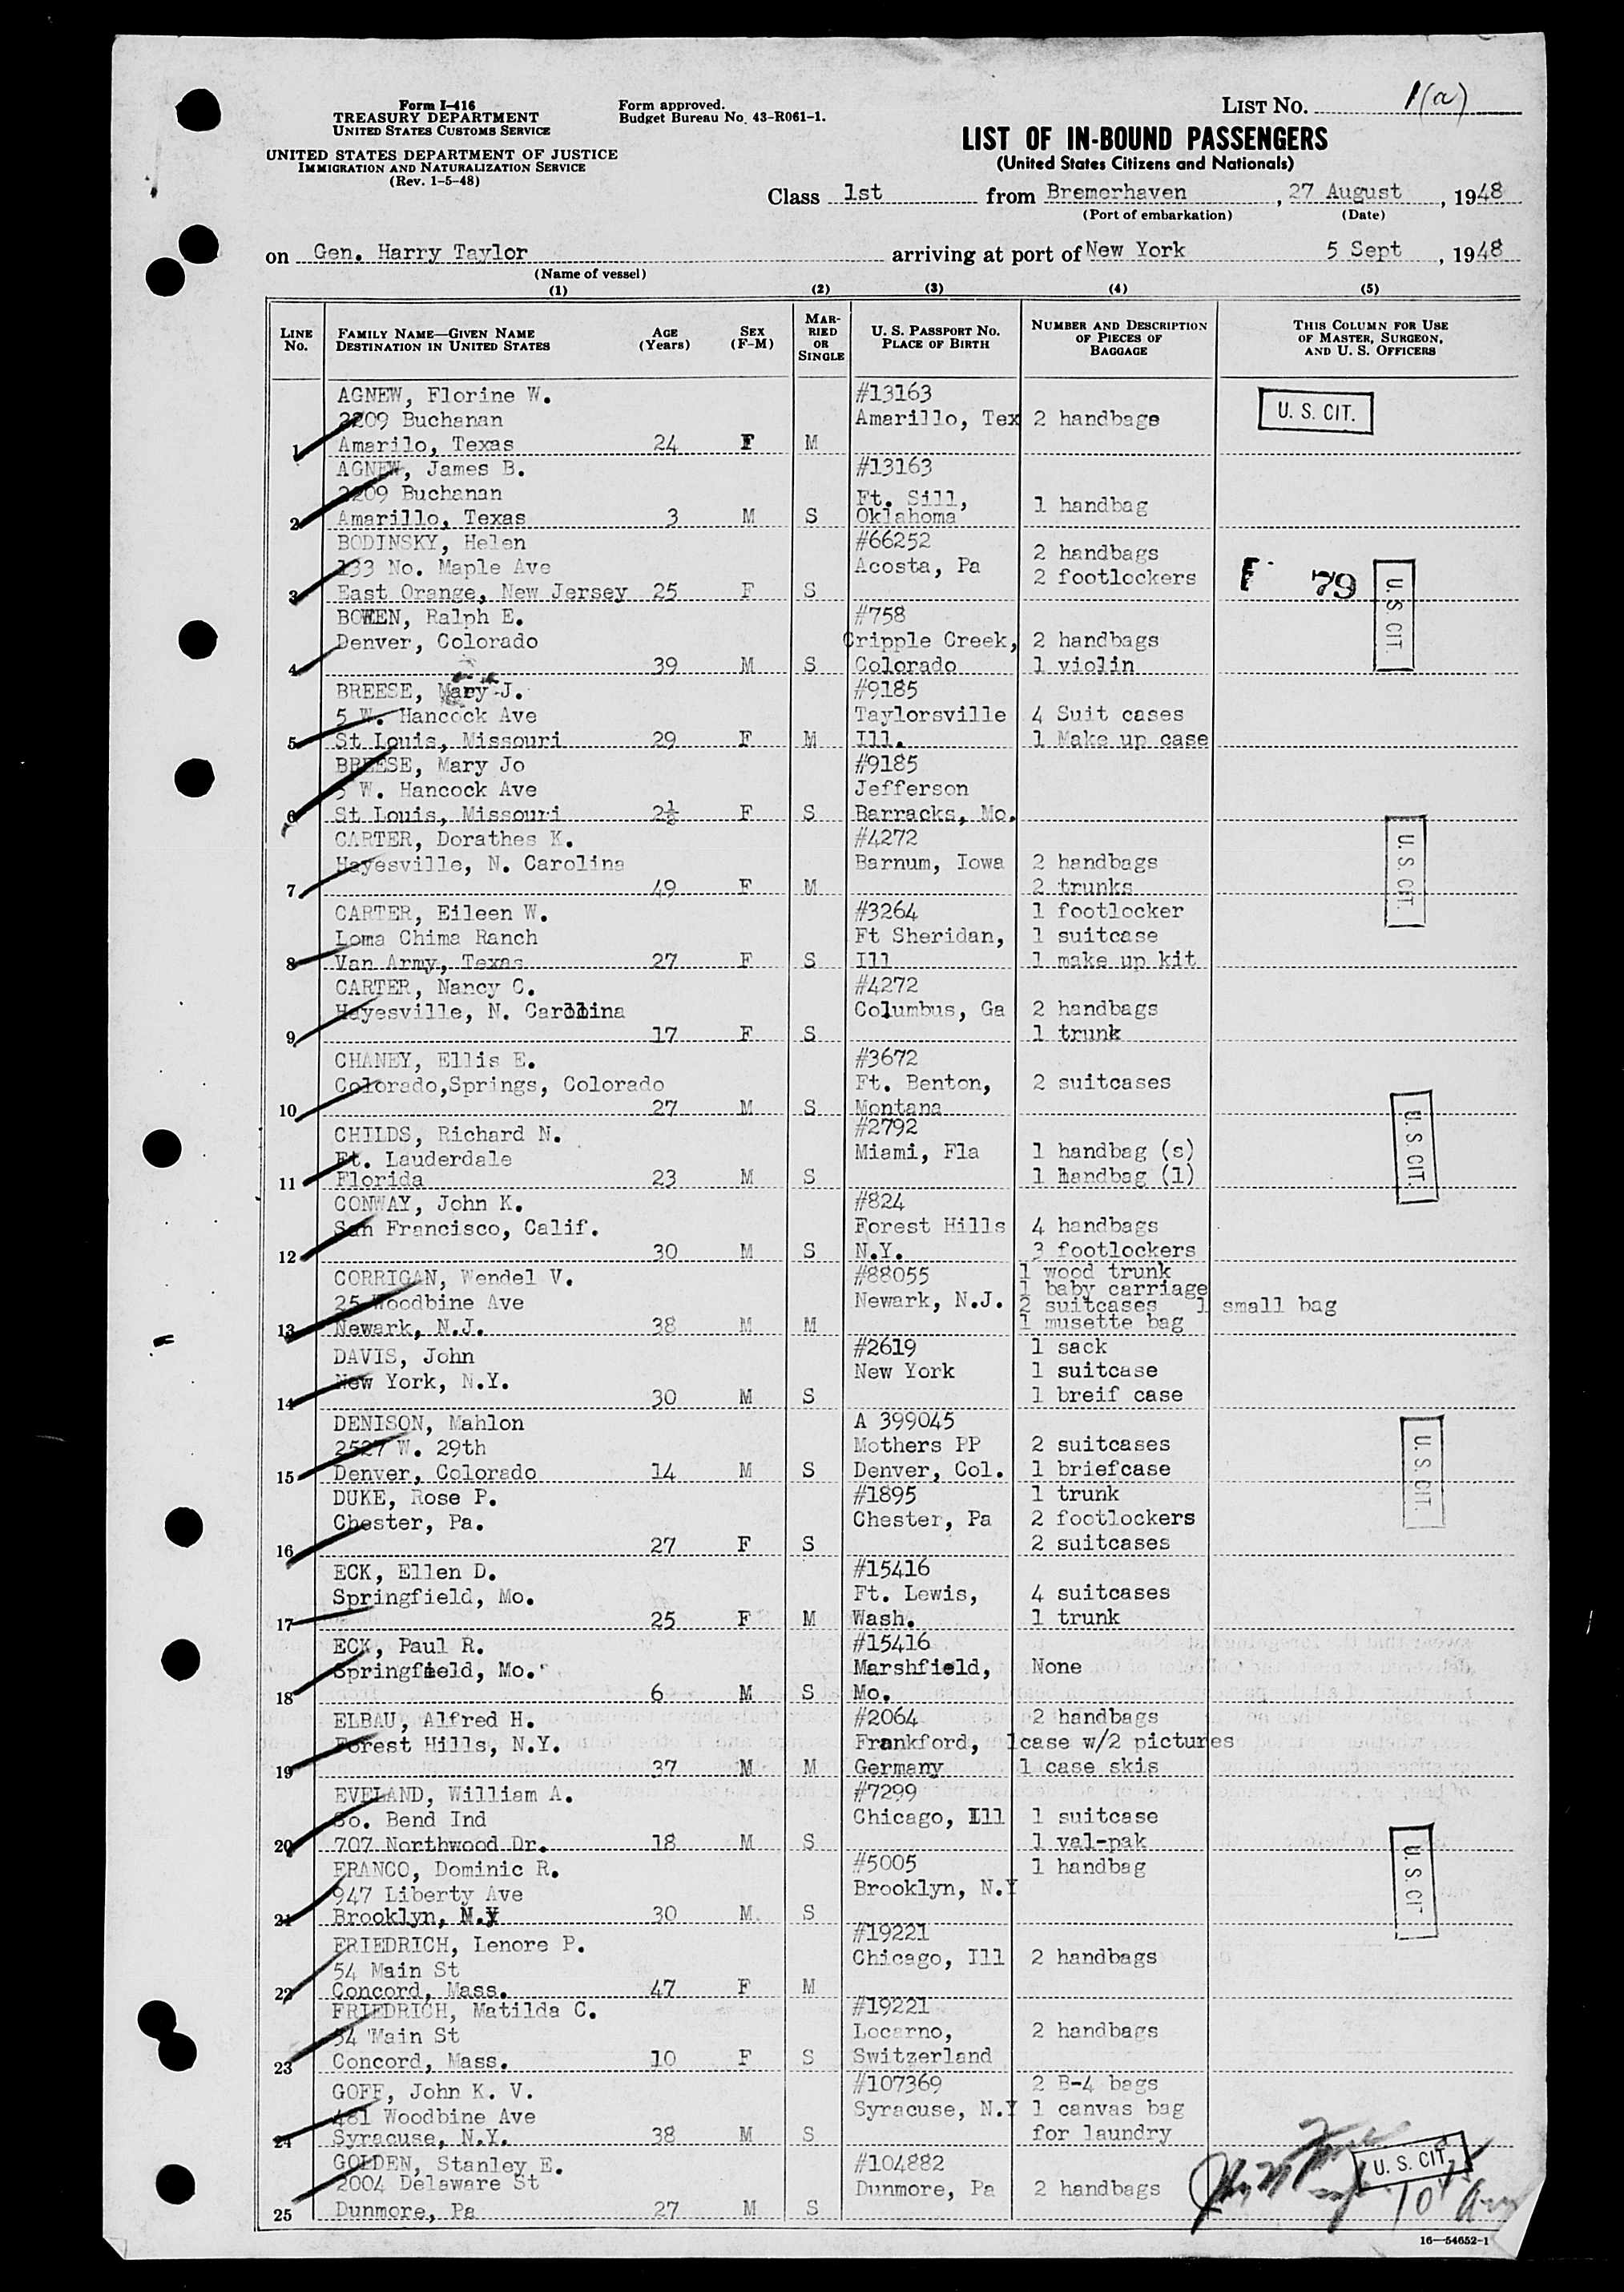 Form I-416
TREASURY DEPARTMENT
UNITED STATES CUSTOMS SERVICE
UNITED STATES DEPARTMENT OF JUSTICE
IMMIGRATION AND NATURALIZATION SERVICE
(Rev. 1-5-48)
Form approved.
Budget Bureau No. 43-R061-1.
LIST NO. 1(a)
LIST OF IN-BOUND PASSENGERS
(United States Citizens and Nationals)
Class 1st from Bremerhaven, 27 August, 1948
(Port of embarkation) (Date)
on Gen. Harry Taylor arriving at port of New York 5 Sept, 1948
(Name of vessel)
(1) (2) (3) (4) (5)
LINE No.
FAMILY NAME—GIVEN NAME
DESTINATION IN UNITED STATES
AGE (Years)
SEX (F-M)
MARRIED OR SINGLE
U. S. PASSPORT NO.
PLACE OF BIRTH
NUMBER AND DESCRIPTION OF PIECES OF BAGGAGE
THIS COLUMN FOR USE OF MASTER, SURGEON, AND U. S. OFFICERS
AGNEW, Florine W. #13163
2209 Buchanan Amarillo, Tex 2 handbags U. S. CIT.
1 Amarilo, Texas 24 F M
AGNEW, James B. #13163
2209 Buchanan Ft. Sill, 1 handbag
2 Amarillo, Texas 3 M S Oklahoma
BODINSKY, Helen #66252 2 handbags
133 No. Maple Ave Acosta, Pa 2 footlockers F 79 U. S. CIT.
3 East Orange, New Jersey 25 F S
BOWEN, Ralph E. #758
Denver, Colorado Cripple Creek, 2 handbags
4 39 M S Colorado 1 violin
BREESE, Mary J. #9185
5 W. Hancock Ave Taylorsville 4 Suit cases
5 St Louis, Missouri 29 F M Ill. 1 Make up case
BREESE, Mary Jo #9185
5 W. Hancock Ave Jefferson
6 St Louis, Missouri 2½ F S Barracks, Mo.
CARTER, Dorathes K. #4272 U. S. CIT.
Hayesville, N. Carolina Barnum, Iowa 2 handbags
7 49 F M 2 trunks
CARTER, Eileen W. #3264 1 footlocker
Loma Chima Ranch Ft Sheridan, 1 suitcase
8 Van Army, Texas 27 F S Ill 1 make up kit
CARTER, Nancy C. #4272
Hayesville, N. Carolina Columbus, Ga 2 handbags
9 17 F S 1 trunk
CHANEY, Ellis E. #3672
Colorado,Springs, Colorado Ft. Benton, 2 suitcases
10 27 M S Montana
CHILDS, Richard N. #2792 U. S. CIT.
Ft. Lauderdale Miami, Fla 1 handbag (s)
11 Florida 23 M S 1 handbag (l)
CONWAY, John K. #824
San Francisco, Calif. Forest Hills 4 handbags
12 30 M S N.Y. 3 footlockers
CORRIGAN, Wendel V. #88055 1 wood trunk
1 baby carriage
25 Woodbine Ave Newark, N.J. 2 suitcases 1 small bag
13 Newark, N.J. 38 M M 1 musette bag
DAVIS, John #2619 1 sack
New York, N.Y. New York 1 suitcase
14 30 M S 1 breif case
DENISON, Mahlon A 399045
2527 W. 29th Mothers PP 2 suitcases U. S. CIT.
15 Denver, Colorado 14 M S Denver, Col. 1 briefcase
DUKE, Rose P. #1895 1 trunk
Chester, Pa. Chester, Pa 2 footlockers
16 27 F S 2 suitcases
ECK, Ellen D. #15416
Springfield, Mo. Ft. Lewis, 4 suitcases
17 25 F M Wash. 1 trunk
ECK, Paul R. #15416
Springfield, Mo. Marshfield, None
18 6 M S Mo.
ELBAU, Alfred H. #2064 2 handbags
Forest Hills, N.Y. Frankford, 1case w/2 pictures
19 37 M M Germany 1 case skis
EVELAND, William A. #7299
So. Bend Ind Chicago, Ill 1 suitcase
20 707 Northwood Dr. 18 M S 1 val-pak
FRANCO, Dominic R. #5005 1 handbag U. S. CIT
947 Liberty Ave Brooklyn, N.Y
21 Brooklyn, N.Y 30 M. S
FRIEDRICH, Lenore P. #19221
54 Main St Chicago, Ill 2 handbags
22 Concord, Mass. 47 F M
FRIEDRICH, Matilda C. #19221
54 Main St Locarno, 2 handbags
23 Concord, Mass. 10 F S Switzerland
GOFF, John K. V. #107369 2 B-4 bags
481 Woodbine Ave Syracuse, N.Y 1 canvas bag
24 Syracuse, N.Y. 38 M S for laundry
GOLDEN, Stanley E. #104882 U. S. CIT.
2004 Delaware St Dunmore, Pa 2 handbags
25 Dunmore, Pa 27 M S
16—54652-1